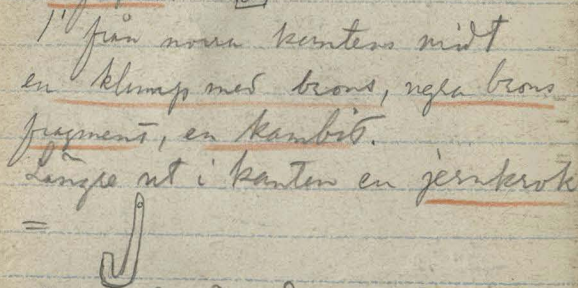 1' från norra kantens midt
en klump med brons, några brons
fragment, en kambit.
Längre ut i kanten en jernkrok
=